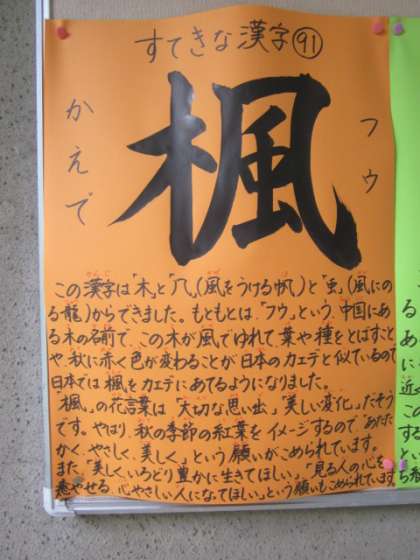 すてきな漢字91
楓
フウ
かえで
この漢字は「木」と「几」(風をうける帆)と「虫」(風にの
る龍)からできました。もともとは、「フウ」という、中国にあ
る木の名前で、この木が風でゆれて、葉や種をとばすこと
や、秋に赤く色が変わることが日本のカエデと似ているので
日本では楓をカエデにあてるようになりました。
「楓」の花言葉は、「大切な思い出」「美しい変化」だそう
です。やはり、秋の季節の紅葉をイメージするので「あたた
かく、やさしく、美しく」という願いがこめられています。
また、「美しく、いろどり豊かに生きてほしい」「見る人の心を
癒やせる、心やさしい人になってほしい」という願いもこめられています